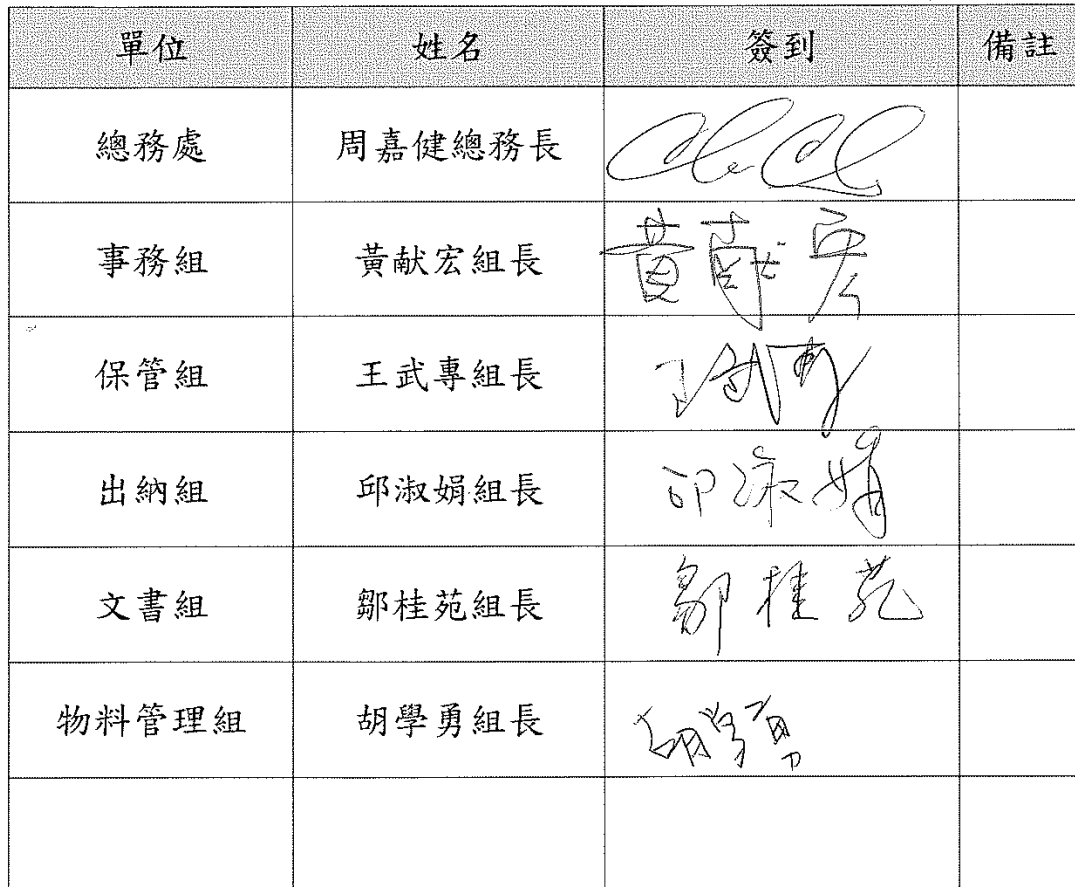 單位 姓名 簽到 備註
總務處 周嘉健總務長
事務組 黃献宏組長 黃献宏
保管組 王武專組長 王武專
出納組 邱淑娟組長 邱淑娟
文書組 鄒桂苑組長 鄒桂苑
物料管理組 胡學勇組長 胡学勇